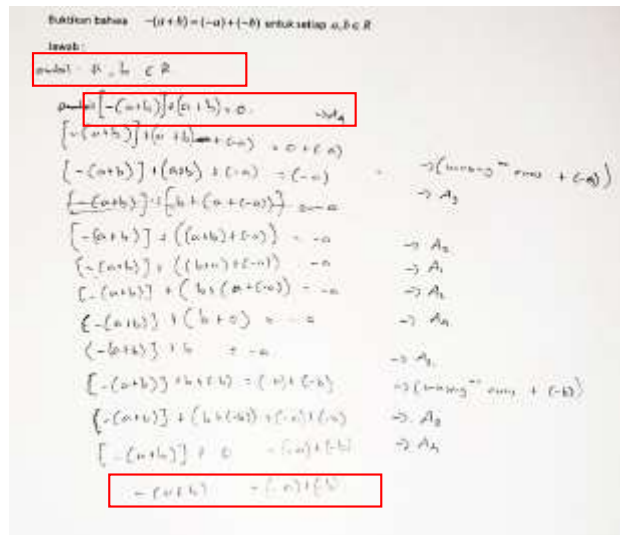 Buktikan bahwa -(a + b) = (-a) + (-b) untuk setiap a, b ∈ R
Jawab :
a, b ∈ R
[-(a+b)] + (a+b) = 0 → A4
[-(a+b)] + (a+b) + (-a) = 0 + (-a)
[-(a+b)] + (a+b) + (-a) = (-a) + (-a))
→ A3
[-(a+b)] + ((a+b)+(-a)) = -a → A2
[-(a+b)] + ((b+a)+(-a)) -a → A1
[-(a+b)] + (b+(a+(-a)) = -a → A2
[-(a+b)] + (b+0) = -a → A4
[-(a+b)] + b = -a → A3
[-(a+b)] + b + (-b) = (-a) + (-b) + (-b))
[-(a+b)] + (b+(-b)) = (-a) + (-b) → A2
[-(a+b)] + 0 = (-a) + (-b) → A4
-(a+b) = (-a) + (-b)